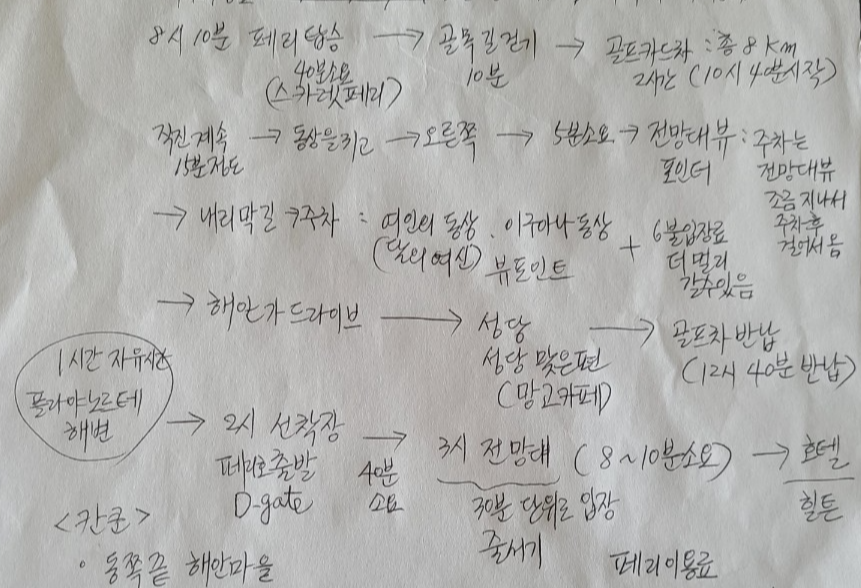 8시 10분 페리탑승 → 골목길걷기 → 골프카트차 : 총 8 km
40분소요 10분 2시간 (10시 40분시작)
(스카렛페리)
직진계속 → 동상을끼고 → 오른쪽 → 5분소요 → 전망대뷰 : 주차는
15분정도 포인터 전망대뷰
조금지나서
주차후
걸어서옴
→ 내리막길 → 주차 : 여인의 동상 . 이구아나 동상 + 6불입장료
(달의여신) 뷰포인트 더 멀리
갈수있음
→ 해안가드라이브 → 성당 → 골프차 반납
성당 맞은편 (12시 40분 반납)
(망고카페)
1시간 자유시간
플라야노르테
해변
→ 2시 선착장 → 3시 전망대 (8~10분소요) → 호텔
페리호출발 40분 30분 단위로 입장 힐튼
D-gate 소요 줄서기
<칸쿤>
• 동쪽끝 해안마을 페리이용료